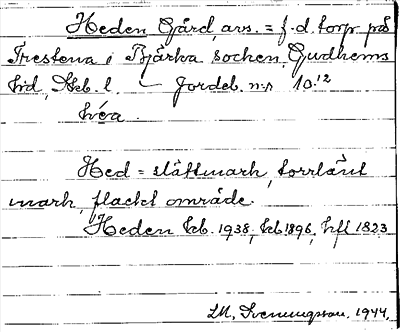 Heden Gård, avs. = f.d. torp på
Trestena i Bjärka socken, Gudhems
hd, Skb. l. — Jordeb. n:r 10.¹²
héa.
Hed = slättmark, torrlänt
mark, flackt område.
Heden kb. 1938, kb 1896, hfl 1823
LM, Svenungsson, 1944.